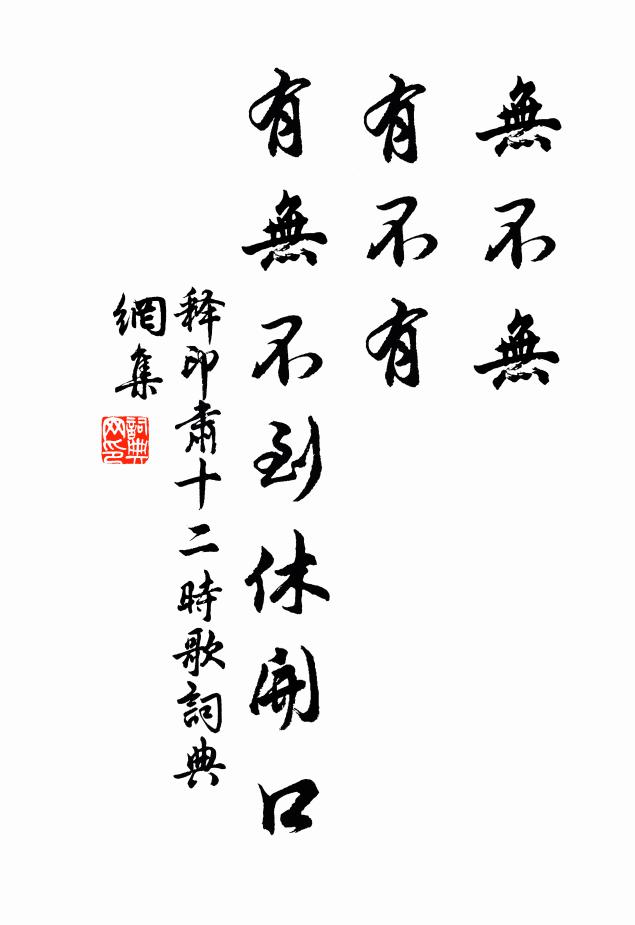 無不無
有不有
有無不到休開口
释印肅十二時歌詞典
網集
詞典网印